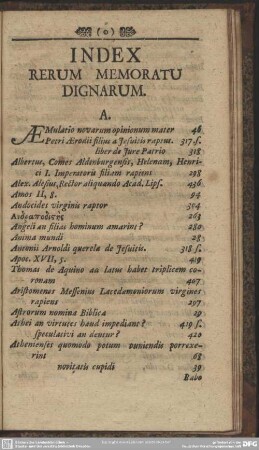 ( o )
INDEX
RERUM MEMORATU
DIGNARUM.
A.
ÆMulatio novarum opinionum mater 46.
Petri Ærodii filius a Jesuitis raptus. 317. s.
liber de Jure Patrio 318
Albertus, Comes Aldenburgensis, Helenam, Henri-
ci I. Imperatoris filiam rapiens 298
Alex. Alesius, Rector aliquando Acad. Lips. 436.
Amos II, 8. 64
Andocides virginis raptor 304
Ανδραποδιτής 263
Angeli an filias hominum amarint? 280
Anima mundi 28
Antonii Arnoldi querela de Jesuitis. 318. s.
Apoc. XVII, 5. 419
Thomas de Aquino an latus habet triplicem co-
ronam 407
Aristomenes Messenius Lacedæmoniorum virgines
rapiens 297
Astrorum nomina Biblica 29
Athei an virtutes haud impediant? 419 s.
speculativi an dentur? 420
Athenienses quomodo potum puniendis porrexe-
rint 68
novitatis cupidi 39
Rabo